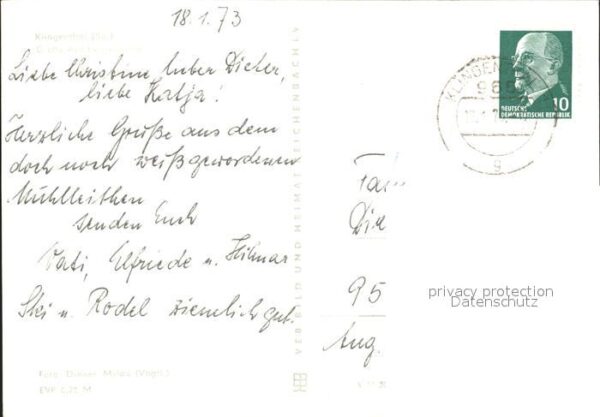 18.1.73
Klingenthal
Liebe Christine, lieber Dieter,
liebe Katja!
Herzliche Grüße aus dem
doch noch weißgewordenen
Mühlleithen
senden Euch
Vati, Elfriede u. Hilmar
Ski u. Rodel ziemlich gut.
EVP
VEB BILD UND HEIMAT REICHENBACH I. V.
KLINGEN
DEUTSCHE
DEMOKRATISCHE REPUBLIK
10
g
95
Aug.
privacy protection
Datenschutz